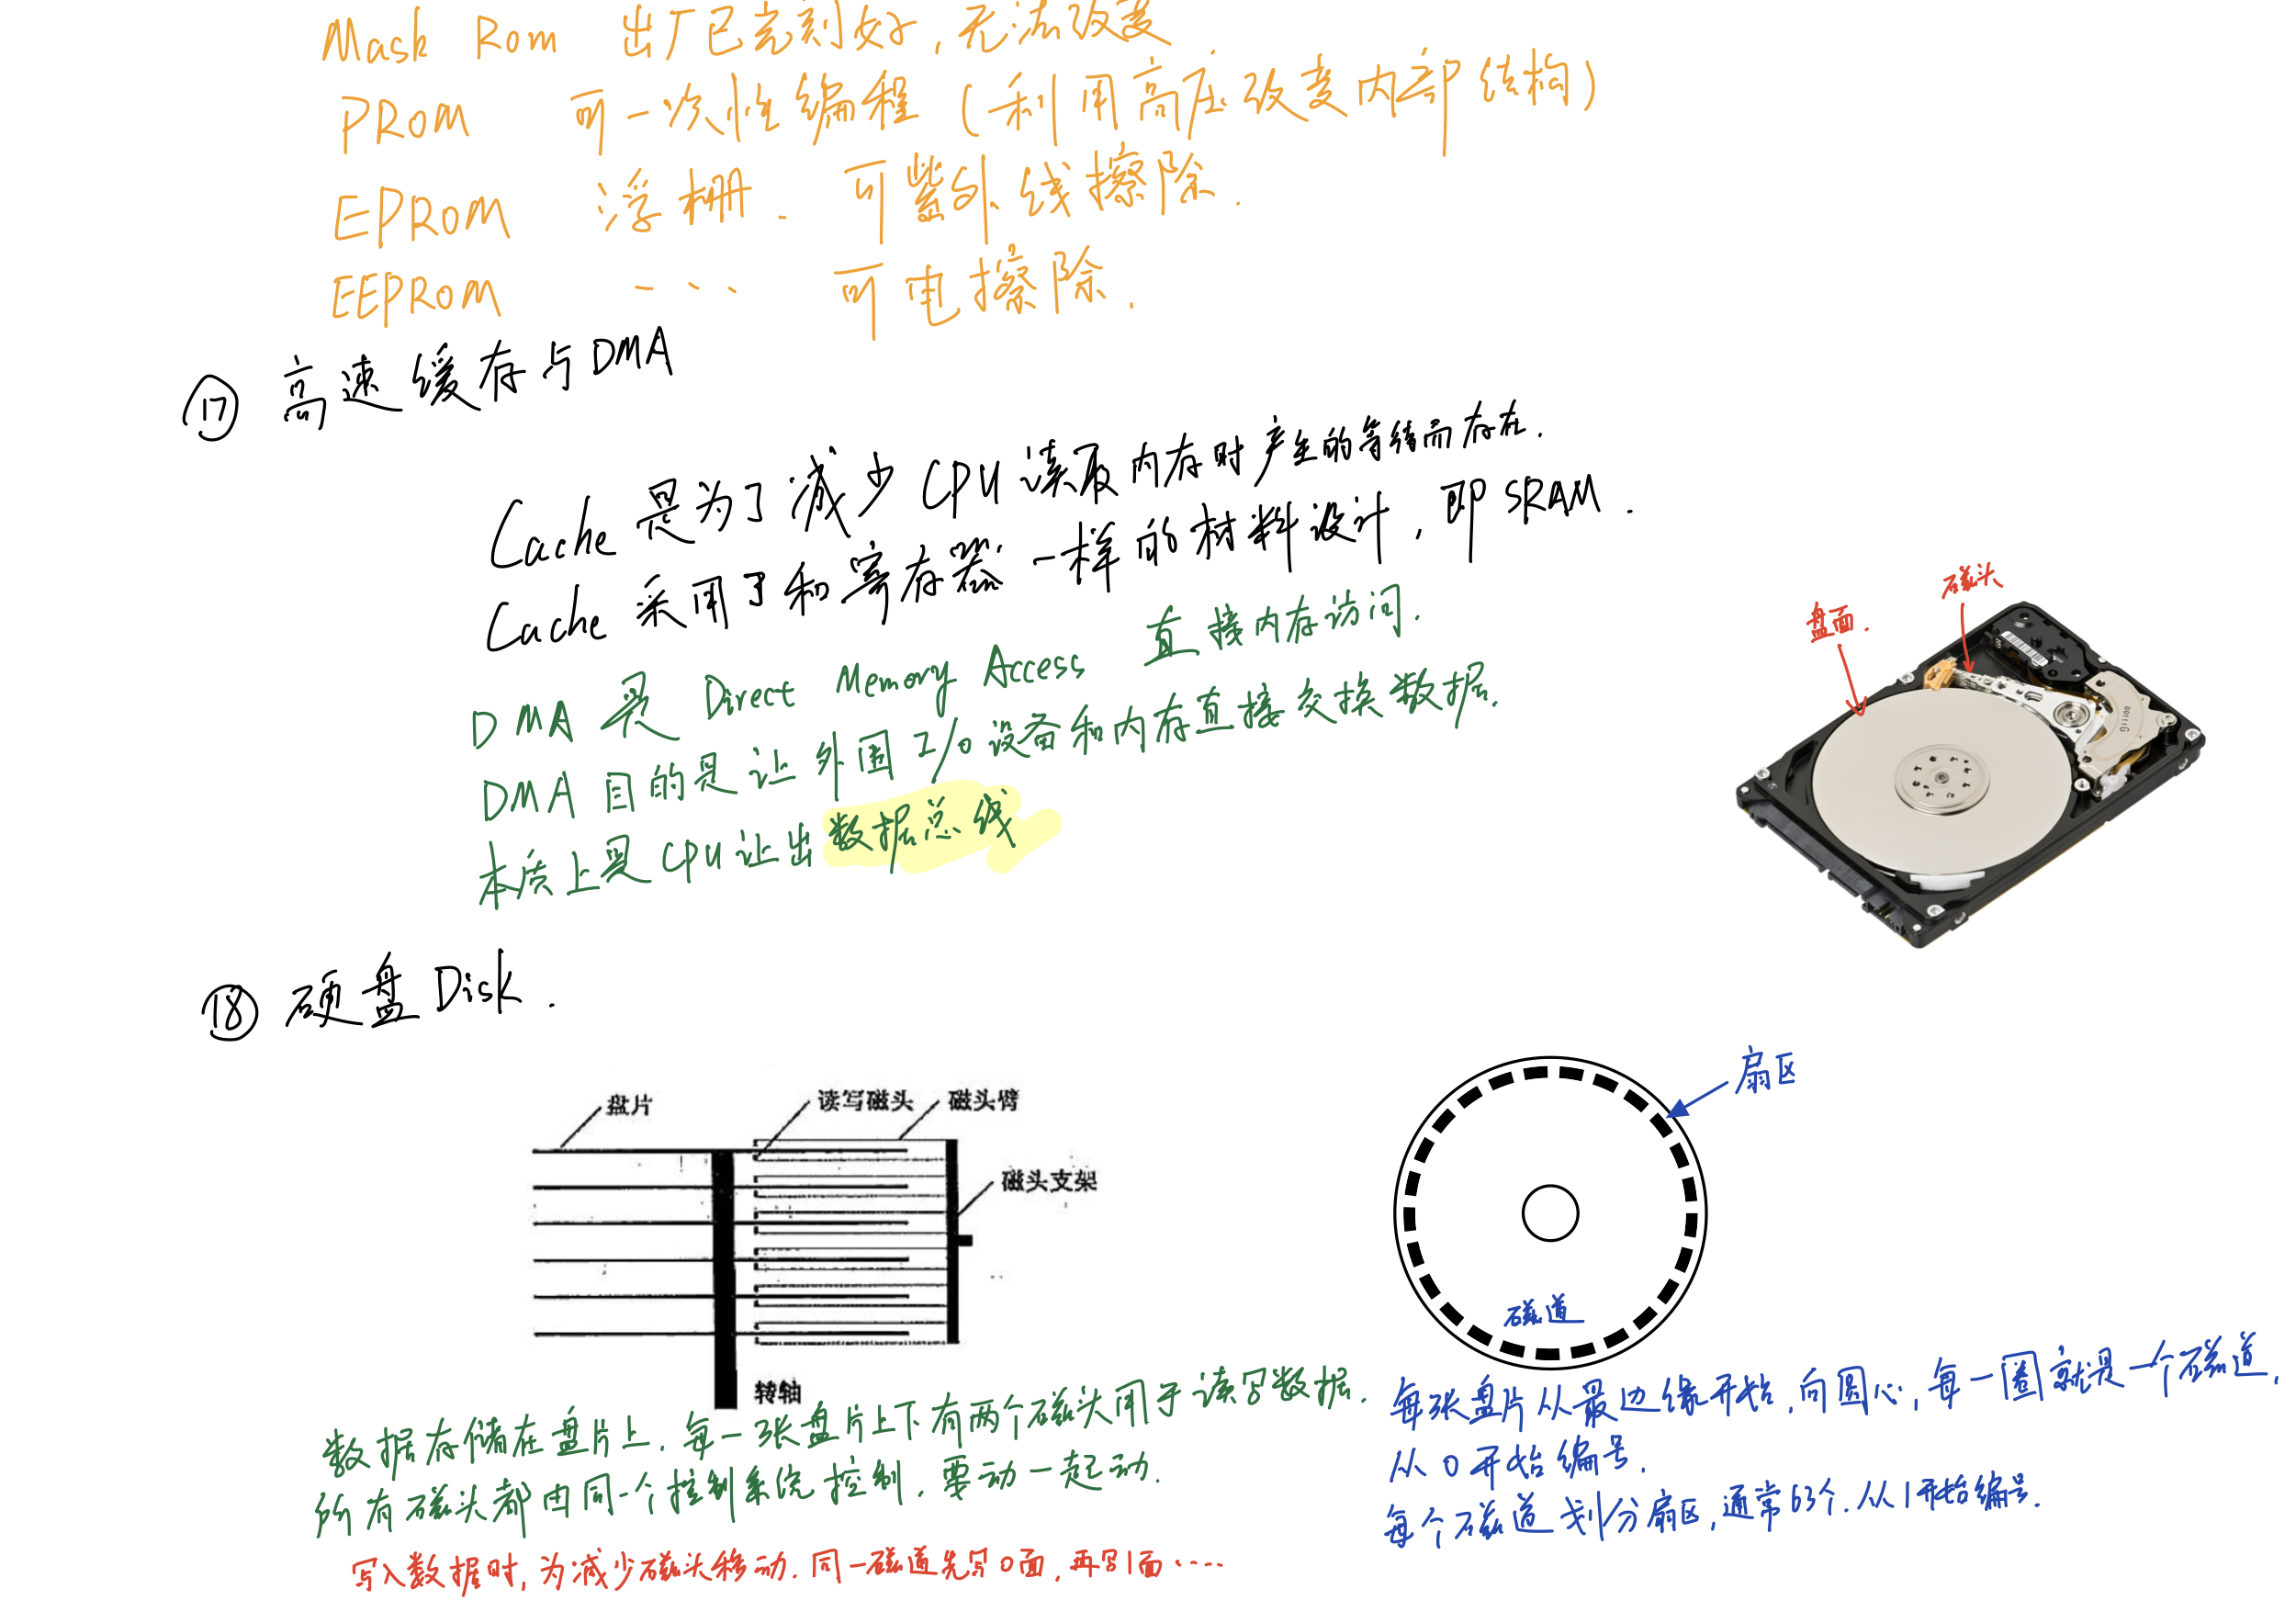 Mask Rom 出厂已完刻好，无法改变
PROM 可一次性编程（利用高压改变内部结构）
EPROM 浮栅. 可紫外线擦除.
EEPROM ... 可电擦除.
⑰ 高速缓存与DMA
Cache 是为了减少 CPU 读取内存时产生的等待而存在.
Cache 采用了和寄存器一样的材料设计，即 SRAM.
DMA 是 Direct Memory Access 直接内存访问.
DMA 目的是让外围 I/O 设备和内存直接交换数据.
本质上是CPU让出数据总线
磁头
盘面.
⑱ 硬盘 Disk.
盘片
读写磁头
磁头臂
磁头支架
转轴
扇区
磁道
数据存储在盘片上. 每一张盘片上下有两个磁头用于读写数据.
所有磁头都由同一个控制系统控制. 要动一起动.
写入数据时，为减少磁头移动. 同一磁道先写0面，再写1面....
每张盘片从最边缘开始，向圆心，每一圈就是一个磁道.
从0开始编号.
每个磁道划分扇区，通常63个. 从1开始编号.